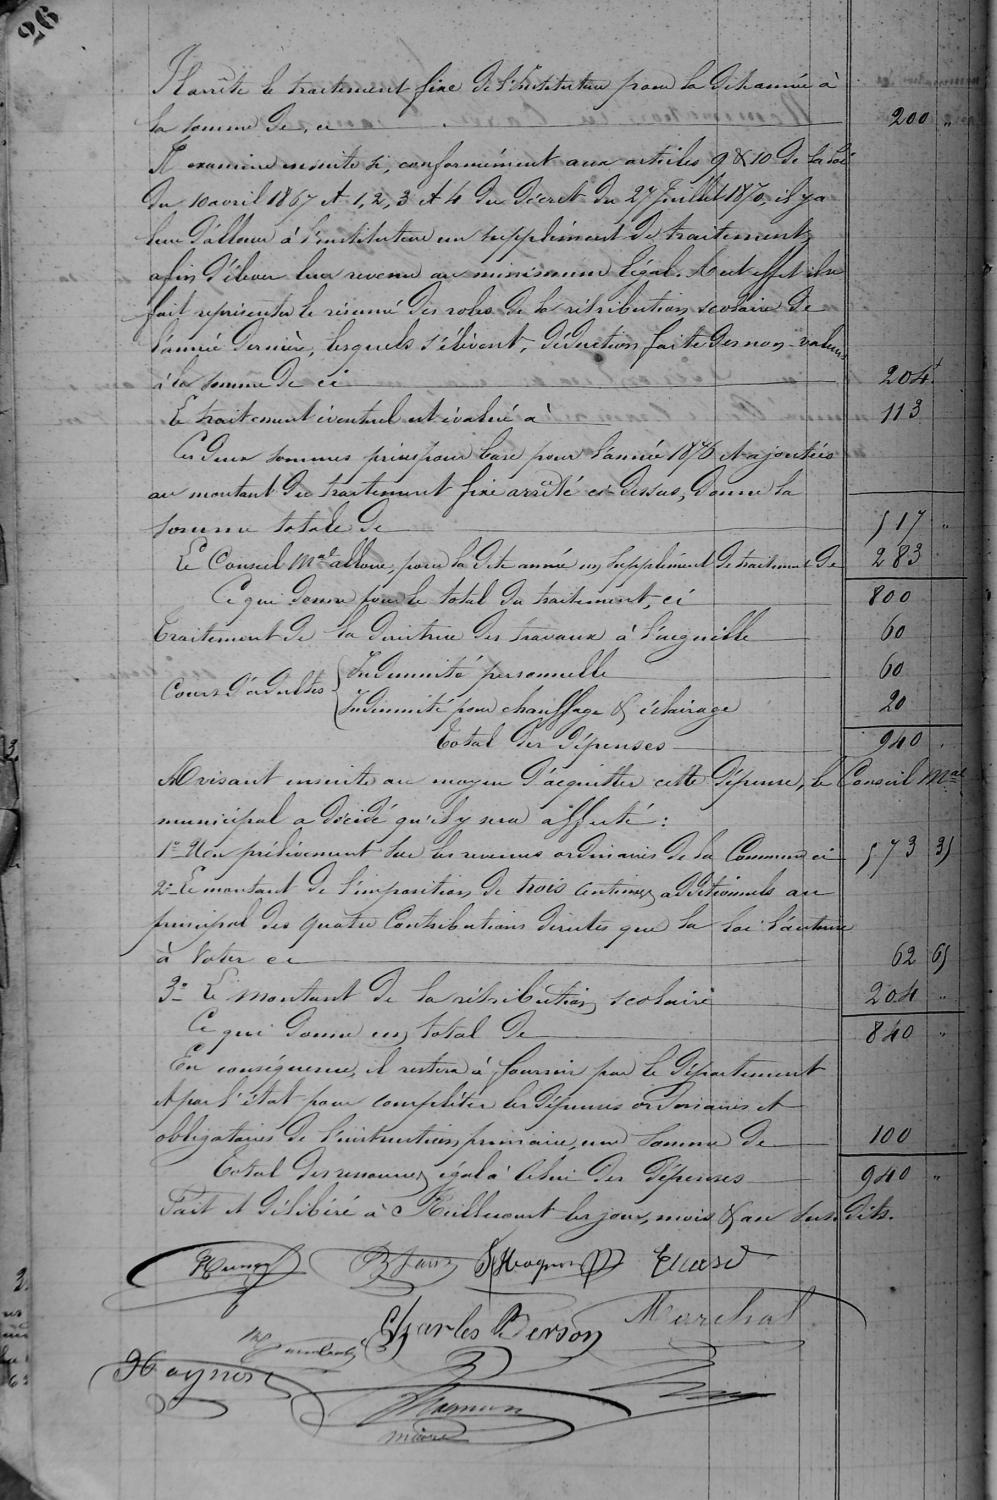 26
Il arrête le traitement fixe de l'Instituteur pour la dite année à
la somme de, ci 200 "
Il examine ensuite si, conformément aux articles 9 & 10 de la loi
du 10 avril 1867 et 1, 2, 3 et 4 du décret du 27 Juillet 1870, il y a
lieu d'allouer à l'instituteur un supplément de traitement,
afin d'élever leur revenu au minimum légal. A cet effet il se
fait représenter le résumé des roles de la rétribution scolaire de
l'année dernière, lesquels s'élèvent, déduction faite des non-valeurs
à la somme de ci 204 f
Le traitement éventuel est évalué à 113
Ces deux sommes prises pour base pour l'année 1876 et ajoutées
au montant du traitement fixe arrêté ci-dessus, donne la
somme totale de 517 "
Le Conseil Mal alloue, pour la dite année un supplément de traitement de 283
Ce qui donne pour le total du traitement, ci 800
Traitement de la directrice des travaux à l'aiguille 60
Cours d'adultes { Indemnité personnelle 60
Indemnité pour chauffage & éclairage 20
Total des dépenses 940 "
Avisant ensuite au moyen d'acquitter cette dépense, le Conseil Mal
municipal a décidé qu'il y sera affecté :
1° Un prélèvement sur les revenus ordinaires de la Commune ci 573 35
2° Le montant de l'imposition de trois centimes additionnels au
principal des quatre Contributions directes que la loi l'autorise
à voter ci 62 65
3° Le montant de la rétribution scolaire 204 "
Ce qui donne un total de 840 "
En conséquence, il restera à fournir par le Département
et par l'état pour compléter les dépenses ordinaires et
obligatoires de l'instruction primaire, une somme de 100
Total des ressources égal à celui des dépenses 940 "
Fait et délibéré à Reillecourt les jour, mois & an susdits.
Charles Person Marchal
maire